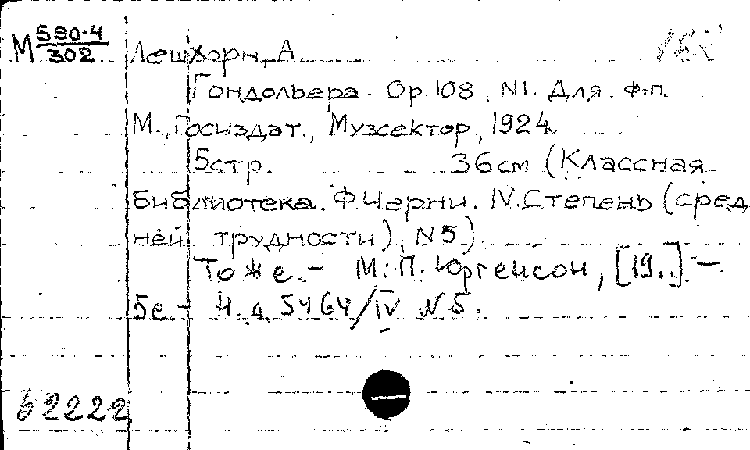 М 590-4/302
Лешгорн, А
Гондольера. Ор.108, N1. Для ф-п.
М., Госиздат., Музсектор, 1924.
5стр. 36см (Классная
библиотека. Ф.Черни. IV. Степень (сред
ней трудности), N5)
Тоже. - М. П. Юргенсон, [19..] -
5с. - Н. д. 5464/IV N 5.
62222